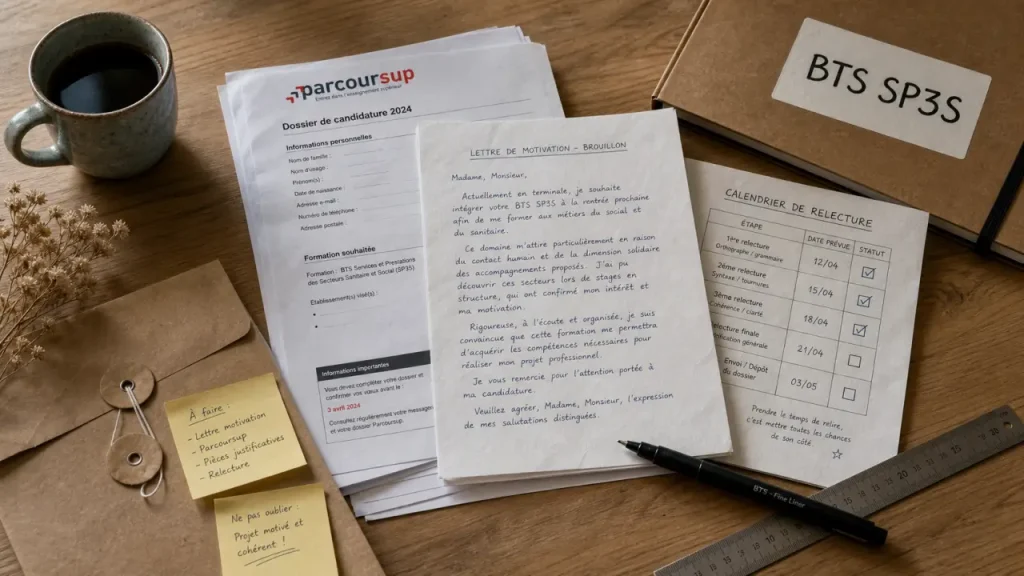 parcoursup
Entrez dans l'enseignement supérieur
Dossier de candidature 2024
Informations personnelles
Nom de famille :
Nom d'usage :
Prénom(s) :
Date de naissance :
Adresse e-mail :
Numéro de téléphone :
Adresse postale :
Formation souhaitée
Formation : BTS Services et Prestations
des Secteurs Sanitaire et Social (SP3S)
Etablissement(s) visé(s) :
Informations importantes
Vous devez compléter votre dossier et
confirmer vos vœux avant le :
3 avril 2024
Consultez régulièrement votre messagerie
et votre dossier Parcoursup.
LETTRE DE MOTIVATION – BROUILLON
Madame, Monsieur,
Actuellement en terminale, je souhaite
intégrer votre BTS SP3S à la rentrée prochaine
afin de me former aux métiers du social et
du sanitaire.
Ce domaine m'attire particulièrement en raison
du contact humain et de la dimension solidaire
des accompagnements proposés. J'ai pu
découvrir ces secteurs lors de stages en
structure, qui ont confirmé mon intérêt et
ma motivation.
Rigoureuse, à l'écoute et organisée, je suis
convaincue que cette formation me permettra
d'acquérir les compétences nécessaires pour
réaliser mon projet professionnel.
Je vous remercie pour l'attention portée à
ma candidature.
Veuillez agréer, Madame, Monsieur, l'expression
de mes salutations distinguées.
BTS SP3S
CALENDRIER DE RELECTURE
ÉTAPE DATE PRÉVUE STATUT
1ère relecture
Orthographe / grammaire
12/04 ☑
2ème relecture
Syntaxe / tournures
15/04 ☑
3ème relecture
Cohérence / clarté
18/04 ☑
Relecture finale
générale
21/04 ☐
Envoi / Dépôt
du dossier
03/05 ☐
Prendre le temps de relire,
c'est mettre toutes les chances
de son côté
☆
À faire :
- Lettre motivation
- Parcoursup
- Pièces justificatives
- Relecture
Ne pas oublier :
Projet motivé et
cohérent !
BTS - Fine Liner